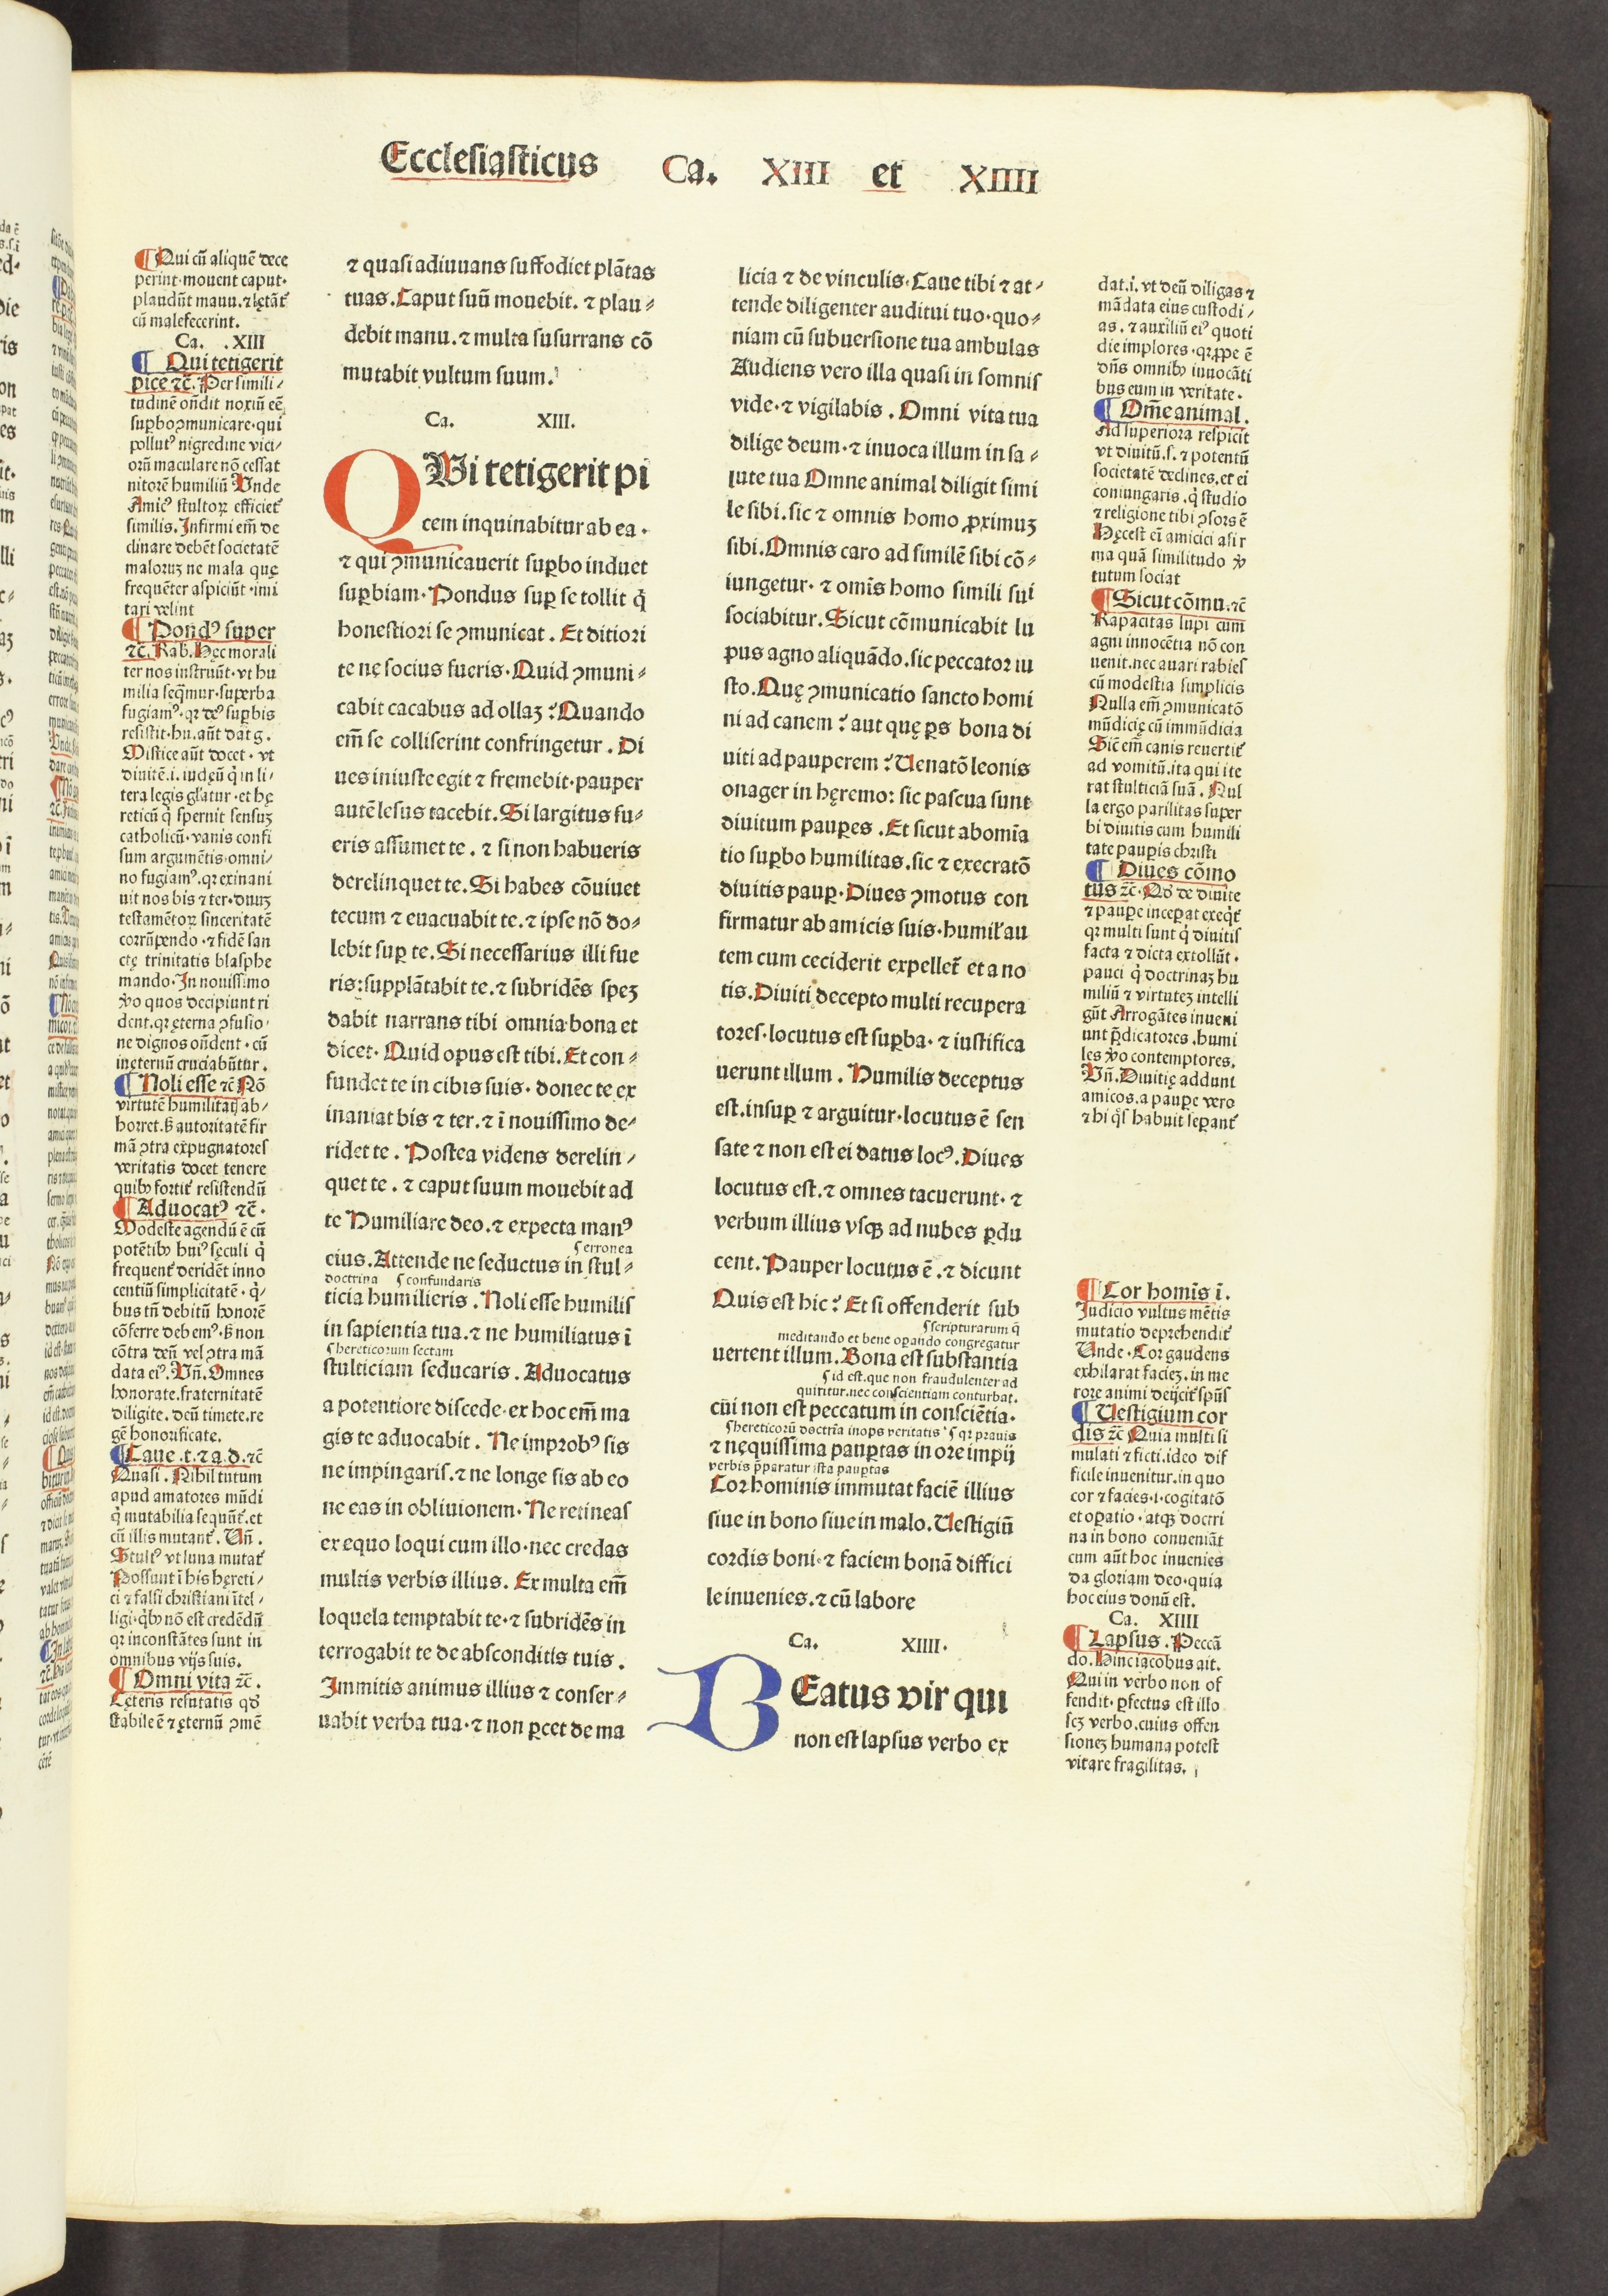 Ecclesiasticus Ca. XIII et XIIII
¶ Qui cū aliquē dece
perint·mouent caput·
plaudūt manu.⁊ lętāt᷑
cū malefecerint.
Ca. .XIII
¶ Qui tetigerit
pice ⁊c̄. Per simili/
tudinē on̄dit noxiū eē
suꝑbo ꝯmunicare·qui
pollut⁹ nigredine vici/
orū maculare nō cessat
nitorē humiliū Vnde
Amic⁹ stultoꝝ efficiet᷑
similis. Infirmi em̄ de
clinare debēt societatē
maloruʒ ne mala quę
frequēter aspiciūt·imi
tari velint
¶ Pond⁹ super
⁊c̄. Rab. Hęc morali
ter nos instruūt·vt hu
milia seq̄mur·superba
fugiam⁹·qꝛ de⁹ suꝑbis
resistit·hu.aūt dat g.
Mistice aūt docet·vt
diuitē.i.iudęū q̇ in li/
tera legis gl̓atur·et hę
reticū q̇ spernit sensuʒ
catholicū·vanis confi
sum argumētis·omni/
no fugiam⁹.qꝛ exinani
uit nos bis ⁊ ter·duuʒ
testamētoꝝ sinceritatē
corrūpendo·⁊ fidē san
ctę trinitatis blasphe
mando·In nouissimo
v̊o quos decipiunt ri
dent.qꝛ ęterna ꝯfusio/
ne dignos on̄dent·cū
in ęternū cruciabūtur.
¶ Noli esse ⁊c̄ Nō
virtutē humilitatꝭ ab/
horret.ß autoritatē fir
mā ꝯtra expugnatores
veritatis docet tenere
quibꝰ fortit᷑ resistendū
¶ Aduocat⁹ ⁊c̄·
Modeste agendū ē cū
potētibꝰ hui⁹ sęculi q̇
frequent᷑ deridēt inno
centiū simplicitatē·q̇/
bus tn̄ debitū honorē
cōferre debem⁹·ß non
cōtra deū vel ꝯtra mā
data ei⁹. Vn̄. Omnes
honorate.fraternitatē
diligite.deū timete.re
gē honorificate.
¶ Caue .t. ⁊ a.d. ⁊c̄
Quasi. Nihil tutum
apud amatores mūdi
q̇ mutabilia sequūt᷑.et
cū illis mutant᷑. Vn̄.
Stult⁹ vt luna mutat᷑
Possunt ī his hęreti/
ci ⁊ falsi christiani ītel/
ligi·q̇bꝰ nō est credēdū
qꝛ inconstātes sunt in
omnibus vijs suis.
¶ Omni vita ⁊c̄.
Cęteris refutatis qd̓
stabile ē ⁊ ęternū ꝯmē
⁊ quasi adiuuans suffodiet plātas
tuas. Caput suū mouebit. ⁊ plau⸗
debit manu.⁊ multa susurrans cō
mutabit vultum suum.
Ca. XIII.
QVi tetigerit pi
cem inquinabitur ab ea·
⁊ qui ꝯmunicauerit suꝑbo induet
suꝑbiam·Pondus suꝑ se tollit q̇
honestiori se ꝯmunicat. Et ditiori
te ne socius fueris·Quid ꝯmuni⸗
cabit cacabus ad ollaʒ? Quando
em̄ se colliserint confringetur. Di
ues iniuste egit ⁊ fremebit·pauper
autē lesus tacebit. Si largitus fu⸗
eris assumet te. ⁊ si non habueris
derelinquet te. Si habes cōuiuet
tecum ⁊ euacuabit te.⁊ ipse nō do⸗
lebit suꝑ te. Si necessarius illi fue
ris:supplātabit te.⁊ subridēs speʒ
dabit narrans tibi omnia bona et
dicet·Quid opus est tibi. Et con⸗
fundet te in cibis suis·donec te ex
inaniat bis ⁊ ter.⁊ ī nouissimo de⸗
ridet te. Postea videns derelin⸗
quet te.⁊ caput suum mouebit ad
te Humiliare deo.⁊ expecta man⁹
ꝭ erronea
eius. Attende ne seductus in stul⸗
doctrina ꝭ confundaris
ticia humilieris. Noli esse humilis
in sapientia tua.⁊ ne humiliatus ī
ꝭ hereticorum sectam
stulticiam seducaris. Aduocatus
a potentiore discede·ex hoc em̄ ma
gis te aduocabit. Ne improb⁹ sis
ne impingaris.⁊ ne longe sis ab eo
ne eas in obliuionem·Ne retineas
ex equo loqui cum illo·nec credas
multis verbis illius. Ex multa em̄
loquela temptabit te·⁊ subridēs in
terrogabit te de absconditis tuis.
Immitis animus illius ⁊ conser⸗
uabit verba tua·⁊ non ꝑcet de ma
licia ⁊ de vinculis·Caue tibi ⁊ at⸗
tende diligenter auditui tuo·quo⸗
niam cū subuersione tua ambulas
Audiens vero illa quasi in somnis
vide·⁊ vigilabis. Omni vita tua
dilige deum·⁊ inuoca illum in sa⸗
lute tua Omne animal diligit simi
le sibi.sic ⁊ omnis homo ꝓximuʒ
sibi. Omnis caro ad similē sibi cō⸗
iungetur·⁊ omīs homo simili sui
sociabitur. Sicut cōmunicabit lu
pus agno aliquādo.sic peccator iu
sto. Quę ꝯmunicatio sancto homi
ni ad canem? aut quę ꝑs bona di
uiti ad pauperem? Uenatō leonis
onager in hęremo: sic pascua sunt
diuitum pauꝑes. Et sicut abomīa
tio suꝑbo humilitas.sic ⁊ execratō
diuitis pauꝑ. Diues ꝯmotus con
firmatur ab amicis suis·humil̓ au
tem cum ceciderit expellet᷑ et a no
tis. Diuiti decepto multi recupera
tores·locutus est suꝑba·⁊ iustifica
uerunt illum. Humilis deceptus
est.insuꝑ ⁊ arguitur·locutus ē sen
sate ⁊ non est ei datus loc⁹. Diues
locutus est.⁊ omnes tacuerunt·⁊
verbum illius vsqꝫ ad nubes ꝑdu
cent. Pauper locutus ē.⁊ dicunt
Quis est hic? Et si offenderit sub
ꝭ scripturarum q̄
meditando et bene oꝑando congregatur
uertent illum. Bona est substantia
ꝭ id est.que non fraudulenter ad
quiritur.nec conscientiam conturbat.
cui non est peccatum in consciētia·
ꝭ hereticorū doctrīa inops veritatis ꝭ qꝛ prauis
⁊ nęquissima pauꝑtas in ore impij
verbis p̄paratur ista pauꝑtas
Cor hominis immutat faciē illius
siue in bono siue in malo. Uestigiū
cordis boni·⁊ faciem bonā diffici
le inuenies.⁊ cū labore
Ca. XIIII·
BEatus vir qui
non est lapsus verbo ex
dat.i. vt deū diligas ⁊
mādata eius custodi/
as. ⁊ auxiliū ei⁹ quoti
die implores·qꝛ ꝓpe ē
dn̄s omnibꝰ inuocāti
bus eum in veritate·
¶ Om̄e animal.
Ad superiora respicit
vt diuitū.s.⁊ potentū
societatē declines.et ei
coniungaris.q̇ studio
⁊ religione tibi ꝯsors ē
Hęc est em̄ amicici asir
ma quā similitudo v̊
tutum sociat
¶ Sicut cōmu.⁊c̄
Rapacitas lupi cum
agni innocētia nō con
uenit.nec auari rabies
cū modestia simplicis
Nulla em̄ ꝯmunicatō
mūdicię cū immūdicia
Sic̄ em̄ canis reuertit᷑
ad vomitū.ita qui ite
rat stulticiā suā. Nul
la ergo parilitas super
bi diuitis cum humili
tate pauꝑis christi
¶ Diues cōmo
tus ⁊c̄·Qd̓ de diuite
⁊ pauꝑe inceꝑat exeq̇t᷑
qꝛ multi sunt q̇ diuitis
facta ⁊ dicta extollūt·
pauci q̇ doctrinaʒ hu
miliū ⁊ virtuteʒ intelli
gūt Arrogātes inueni
unt p̄dicatores.humi
les v̊o contemptores.
Vn̄. Diuitię addunt
amicos.a pauꝑe vero
⁊ hi q̇s habuit seꝑant᷑
¶ Cor homīs ī.
Iudicio vultus mētis
mutatio deprehendit᷑
Unde·Cor gaudens
exhilarat facieʒ.in me
rore animi deijcit᷑ spūs
¶ Uestigium cor
dis ⁊c̄ Quia multi si
mulati ⁊ ficti.ideo dif
ficile inuenitur.in quo
cor ⁊ facies·i·cogitatō
et oꝑatio·atqꝫ doctri
na in bono conueniāt
cum aūt hoc inuenies
da gloriam deo·quia
hoc eius donū est.
Ca. XIIII
¶ Lapsus. Peccā
do. Hinc iacobus ait.
Qui in verbo non of
fendit·ꝑfectus est illo
sꝫ verbo.cuius offen
sioneʒ humana potest
vitare fragilitas.